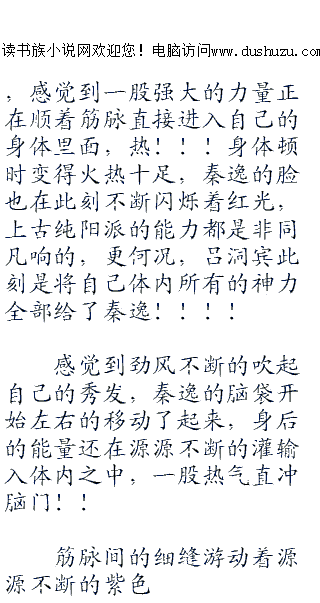 读书族小说网欢迎您！电脑访问www.dushuzu.com
，感觉到一股强大的力量正
在顺着筋脉直接进入自己的
身体里面，热！！！身体顿
时变得火热十足，秦逸的脸
也在此刻不断闪烁着红光，
上古纯阳派的能力都是非同
凡响的，更何况，吕洞宾此
刻是将自己体内所有的神力
全部给了秦逸！！！！
感觉到劲风不断的吹起
自己的秀发，秦逸的脑袋开
始左右的移动了起来，身后
的能量还在源源不断的灌输
入体内之中，一股热气直冲
脑门！！
筋脉间的细缝游动着源
源不断的紫色